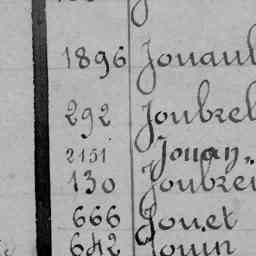 1896 Jouaul
292 Joubrel
2151 Jouan,,
130 Joubrei
666 Jouet
642 Jouin